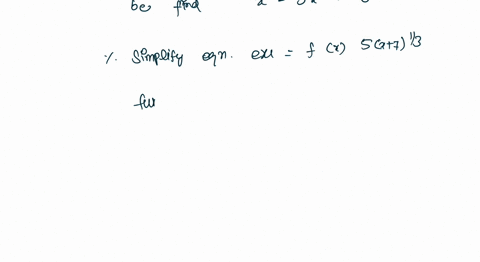 be find
% Simplify eqn. exu = f (x) 5(x+7)^1/3
fu